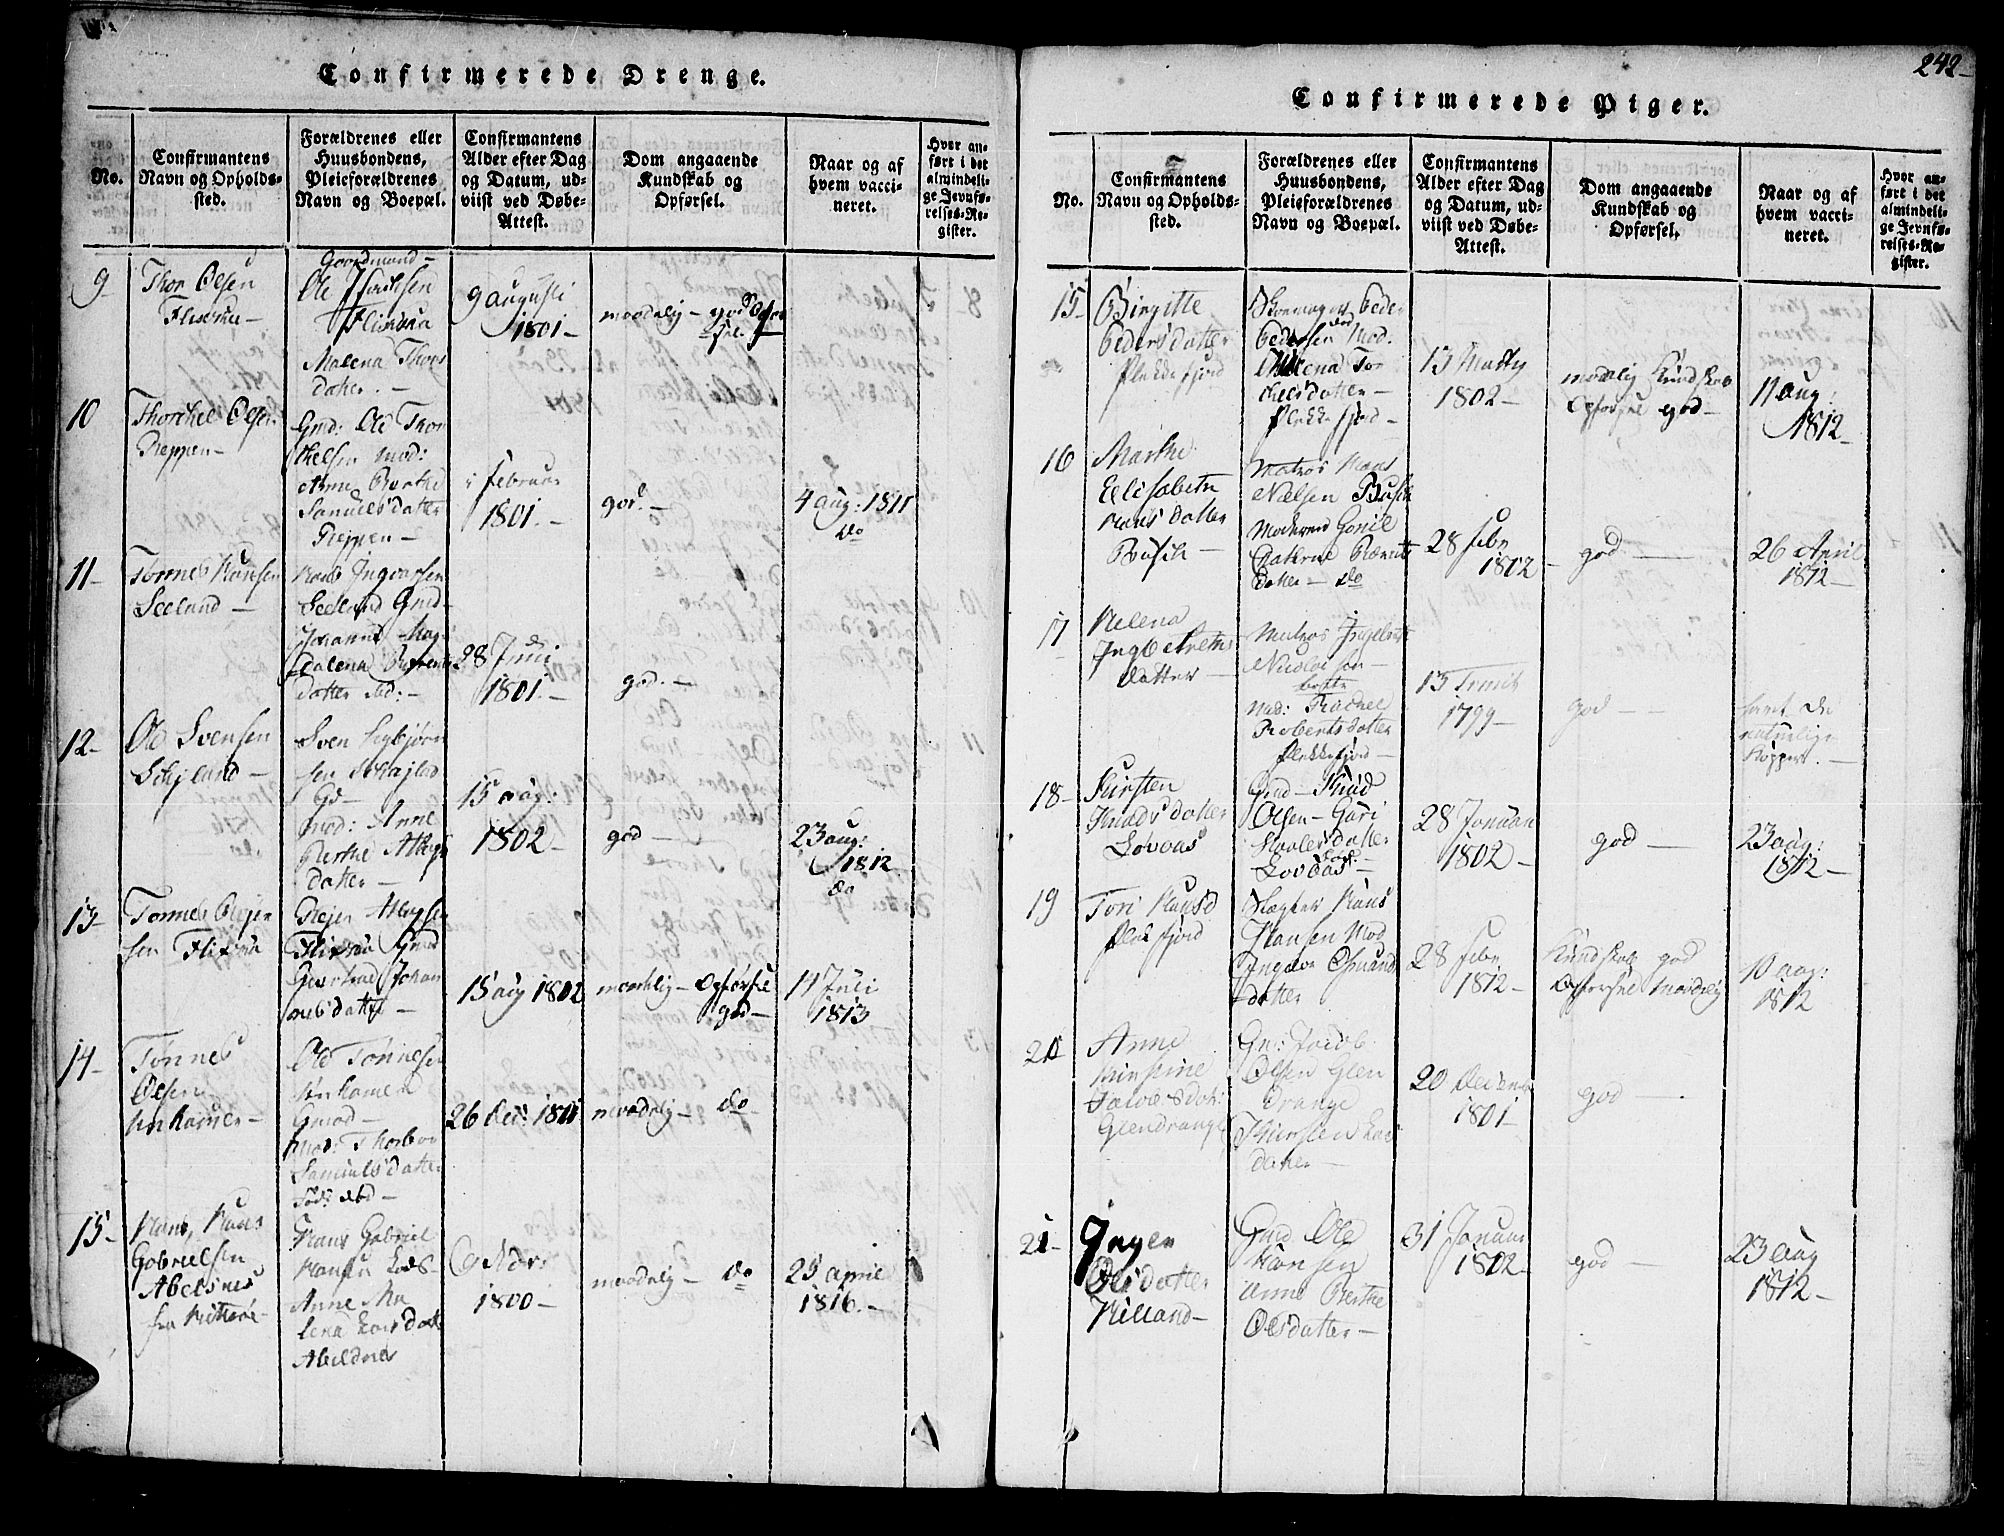 242
Confirmerede Drenge.
No.
Confirmantens
Navn og Opholds-
sted.
Forældrenes eller
Huusbondens,
Pleieforældrenes
Navn og Boepæl.
Confirmantens
Alder efter Dag
og Datum, ud-
viist ved Døbe-
Attest.
Dom angaaende
Kundskab og
Opførsel.
Naar og af
hvem vacci-
neret.
Hvor an-
ført i det
almindeli-
ge Jevnfø-
relses-Re-
gister.
9
Thor Olsen
Flischu
Gaardmand
Ole
Malena Thors
datter
9 Augusti
1801
maadelig god Opfør
sel
10
Thorchel Olsen
Reppen
Gmd: Ole Thor
kelsen mod:
Anne Berthe
Samuelsdatter
Reppen
Februar
1801.
god.
4 aug: 1811
do
11
Tønnes Hansen
Seeland
Hans Ingvarsen
Seeland Gmd
Johanne Mag
dalena
datter
28 Juni
1801.
god.
12
Ole Svensen
Sven Sigbjørn
sen
Gd
mod: Anne
Berthe
datter
15 aug:
1802
god
23 aug:
1812
do
13
Tønnes Rejer
sen
Rejer
Gmd
Johan
nesdatter
15 aug 1802
maadelig Opførsel
god
14 Juli
1813
14
Tønnes
Olsen
Ole Tønnesen
Gmd
mod: Thorbor
Samuelsdatter
26 Dec: 1801
maadelig do
15
Hans, Hans
Gabrielsen
Abelsnes
fra Hitterøe
Hans Gabriel
Hansen
Anne Ma
lena Larsdatter
Abelsnes
6 Nov:
1800
maadelig do
25 april
1816.
Confirmerede Piger.
No.
Confirmantens
Navn og Opholds-
sted.
Forældrenes eller
Huusbondens,
Pleieforældrenes
Navn og Boepæl.
Confirmantens
Alder efter Dag
og Datum, ud-
viist ved Døbe-
Attest.
Dom angaaende
Kundskab og
Opførsel.
Naar og af
hvem vacci-
neret.
Hvor an-
ført i det
almindeli-
ge Jevnfø-
relses-Re-
gister.
15
Birgitte
Pedersdatter
Flekkefjord
Skomager Peder
Pedersen Mod.
Helena Tor
chelsdatter
Flekkefjord
13 Martz
1802
maadelig Kundskab
Opførsel god
11 aug:
1812
16
Marthe
Elisabeth
Hansdatter
Busch
Matros Hans
Nielsen Busch
Moderen Gonil
Cathrine
datter do
28 febr
1802
god
26 April
1812
17
Helena
Ingbretts
datter
Matros Ingebret
Nicolaisen
Mod: Rachel
Robertsdatter
Flekkefjord
13 Trinit
1799
god
havt de
naturlige
Kopper.
18
Kirsten
Knudsdatter
Lovaas
Gmd Knud
Olsen Guri
datter
Lovaas
28 Januar
1802
god
23 aug:
1812
19
Tori Hansd
Flekfjord
Slagter Hans
Hansen Mod
Ingeborg
datter
28 febr
1812
Kundskab god
Opførsel maadelig
10 aug:
1812
20
Anne
Kirstine
Jacobsdotr
Glendrange
Gm: Jacob
Olsen Glen
drange
Kirsten Lars
datter
20 December
1801
god
21
Inger
Olsdatter
Killand
Gmd Ole
Hansen
Anne Berthe
Olsdatter
31 Januar
1802
god
23 aug
1812